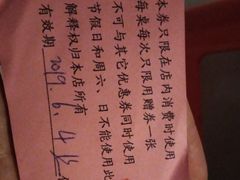 本券只限在店内消费时使用
每桌每次只限用赠券一张
不可与其它优惠券同时使用
节假日和周六、日不能使用此
解释权归本店所有
有效期 2019.6.4